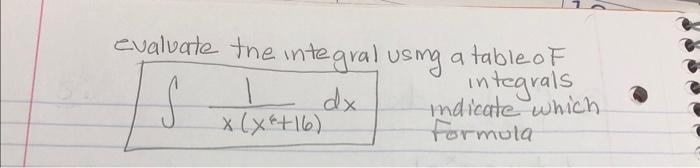 evaluate the integral using a table of
integrals
∫ 1/(x(x⁶+16)) dx
indicate which
formula